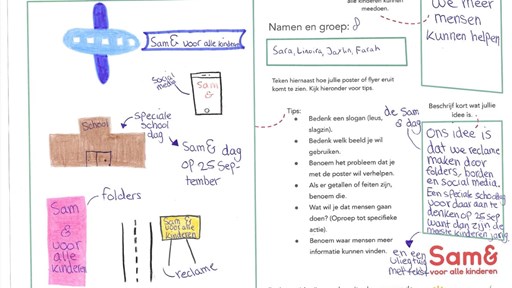 Sam& voor alle kinderen
social media
Sam &
School
speciale school dag
Sam& dag
op 25 Sep-
tember
folders
Sam
&
voor
alle
kinderen
Sam &
voor alle
kinderen
reclame
alle kinderen kunnen
meedoen.
Namen en groep: 8
Teken hiernaast hoe jullie poster of flyer eruit
komt te zien. Kijk hieronder voor tips.
Tips:
Bedenk een slogan (leus,
slagzin).
Bedenk welk beeld je wil
gebruiken.
Benoem het probleem dat je
met de poster wil verhelpen.
Als er getallen of feiten zijn,
benoem die.
Wat wil je dat mensen gaan
doen? (Oproep tot specifieke
actie).
Benoem waar mensen meer
informatie kunnen vinden.
we meer
mensen
kunnen helpen
Beschrijf kort wat jullie
idee is.
de Sam
& dag
Ons idee is
dat we reclame
maken door
folders, borden
en social media.
Een speciale schooldag
voor daar aan te
denken op 25 sep
want dan zijn de
meeste kinderen jarig.
en een
vliegtuig
met tekst
Sam&
voor alle kinderen